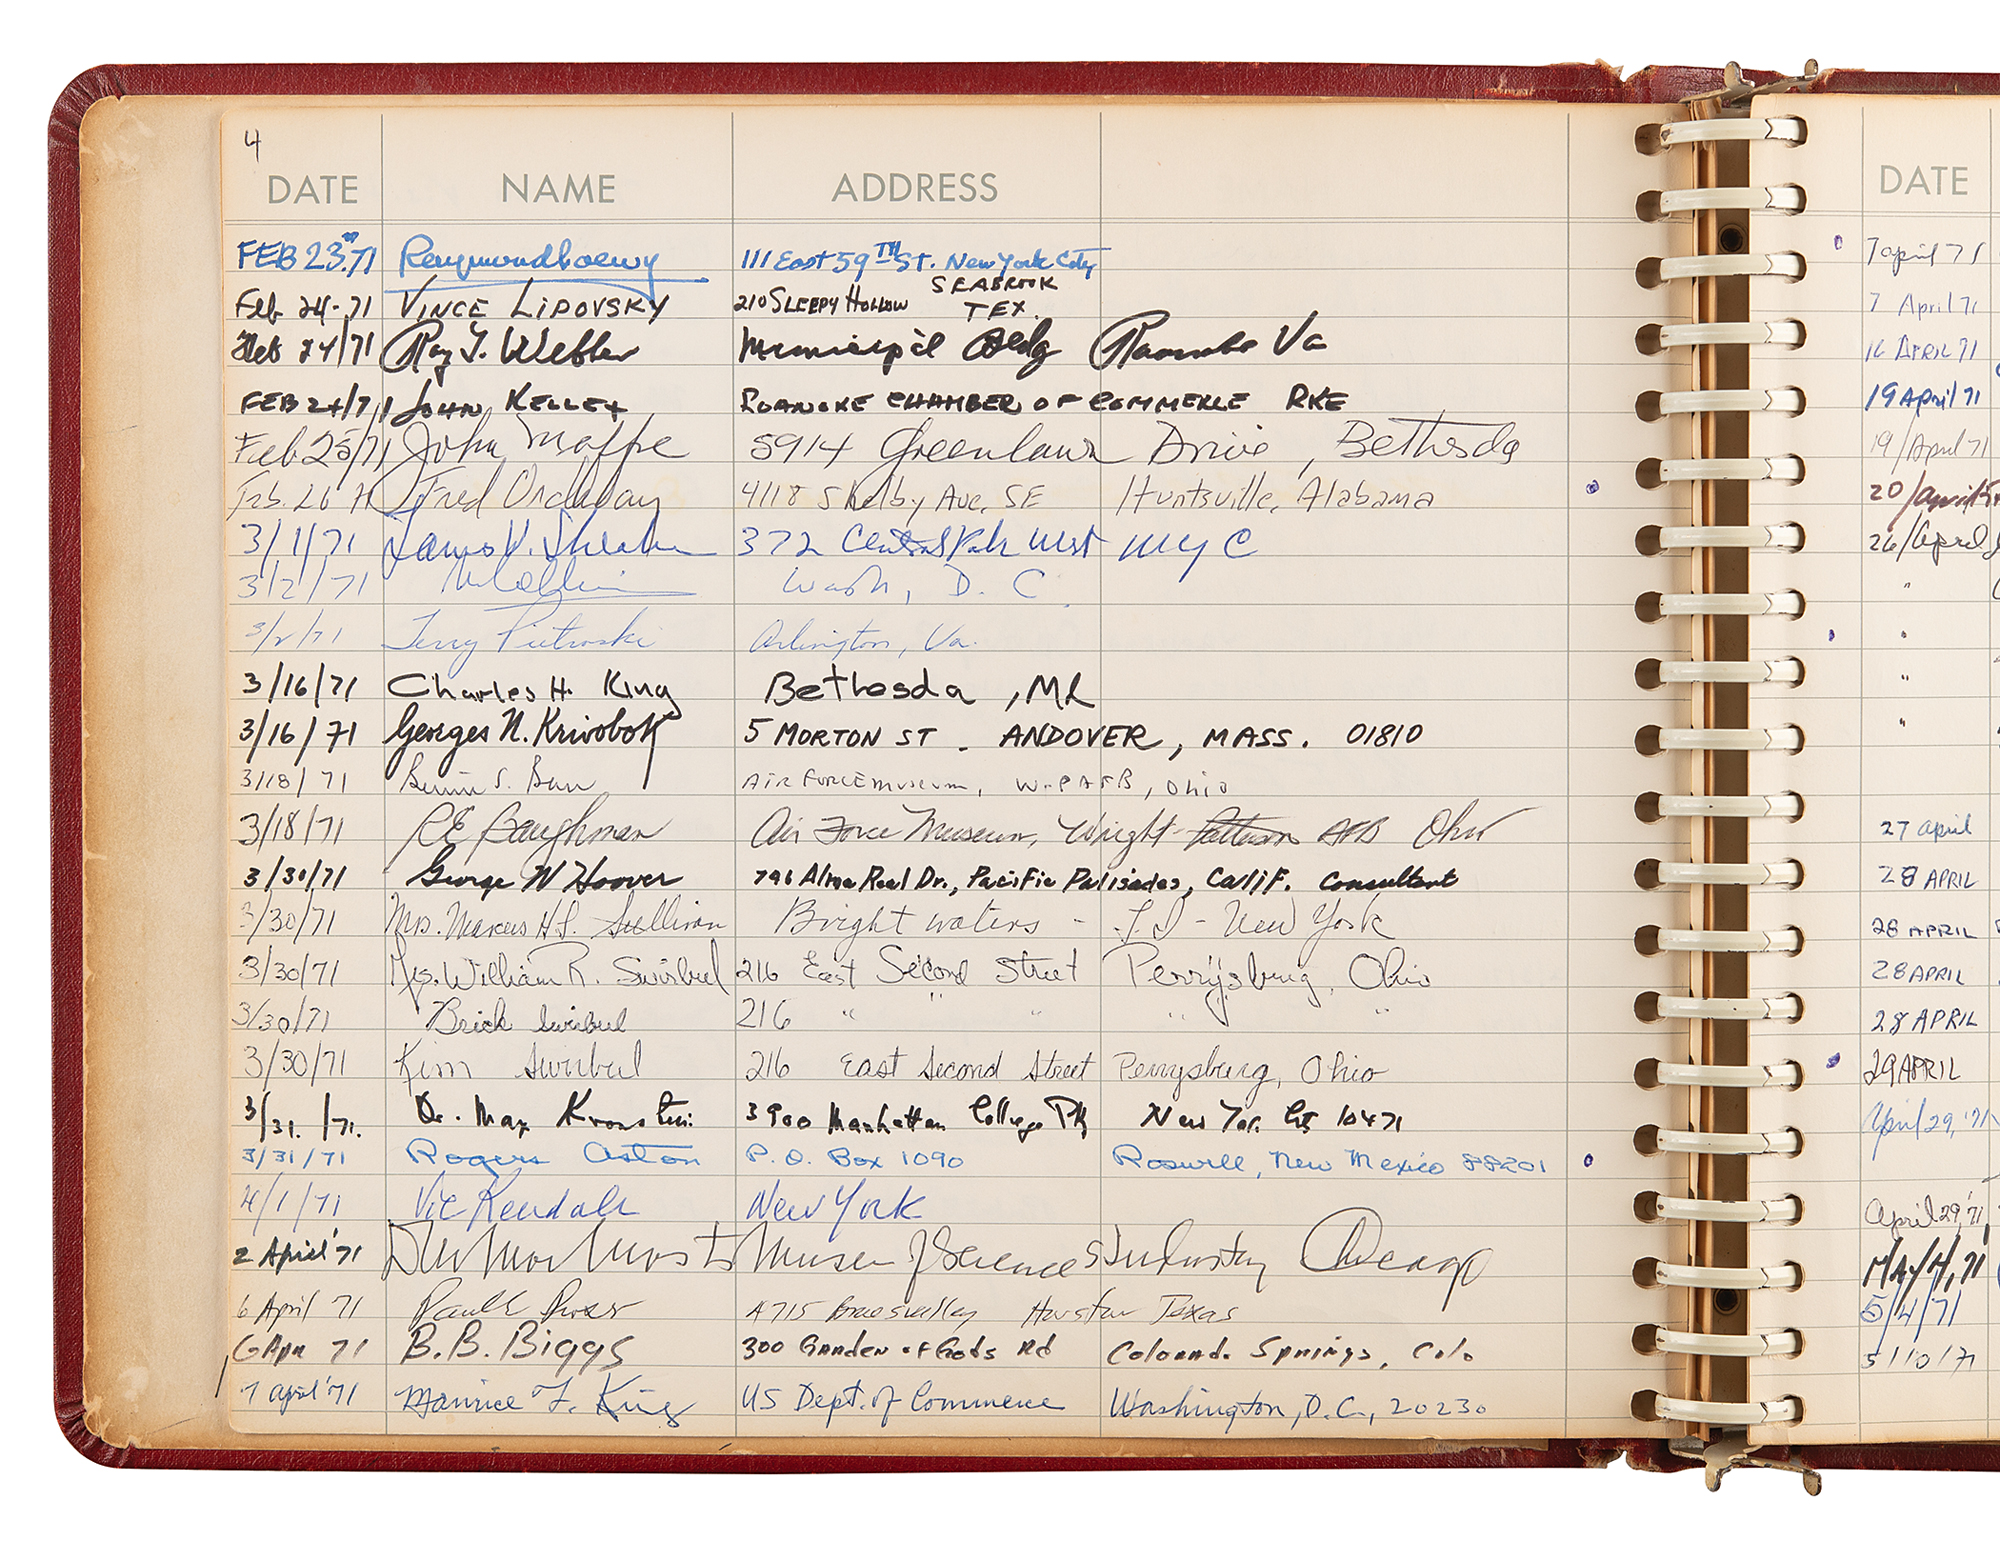 4
DATE NAME ADDRESS
FEB 23. 71 Raymond Loewy 111 East 59TH ST. New York City
Feb 24-71 VINCE LIPOVSKY 210 SLEEPY HOLLOW SEABROOK TEX.
Feb 24/71 Roy L. Webber Municipal Bldg Roanoke Va
FEB 24/71 JOHN KELLEY ROANOKE CHAMBER OF COMMERCE RKE
Feb 25/71 John 5914 Greenlawn Drive, Bethesda
Feb. 26 71 Fred Ordway 4118 Shelby Ave. SE Huntsville, Alabama
3/1/71 James V. 372 Central Park West NYC
3/2/71 Wash, D. C.
3/2/71 Terry Pietroski Arlington, Va.
3/16/71 Charles H. King Bethesda, Md
3/16/71 Georges N. Krivobok 5 MORTON ST. ANDOVER, MASS. 01810
3/18/71 S. AIR FORCE museum, W-PAFB, Ohio
3/18/71 RE Baughman Air Force Museum, Wright-Patterson AFB Ohio
3/30/71 George W Hoover 796 Alma Real Dr., Pacific Palisades, Calif. Consultant
3/30/71 Mrs. Marcus H.S. Sullivan Brightwaters - L.I - New York
3/30/71 Mrs. William R. Swirbul 216 East Second Street Perrysburg, Ohio
3/30/71 Brick Swirbul 216 " " " "
3/30/71 Kim Swirbul 216 East Second Street Perrysburg, Ohio
3/31. /71. Dr. Max 3900 Manhattan College Pk New York 10471
3/31/71 Rogers Aston P.O. Box 1090 Roswell, New Mexico 88201
4/1/71 Vic Kendall New York
2 April '71 Museum of Science & Industry Chicago
6 April 71 Paul E 4715 Houston Texas
6 Apr 71 B.B. Biggs 300 Garden of Gods Rd Colorado Springs, Colo
7 april '71 Maurice F. King US Dept. of Commerce Washington, D.C., 20230
DATE
7 april 71
7 April 71
16 APRIL 71
19 April 71
19/April 71
20/April
26/April
"
"
"
"
27 april
28 APRIL
28 APRIL
28 APRIL
28 APRIL
29 APRIL
April 29, '71
April 29, '71
MAY 4, 71
5/4/71
5/10/71